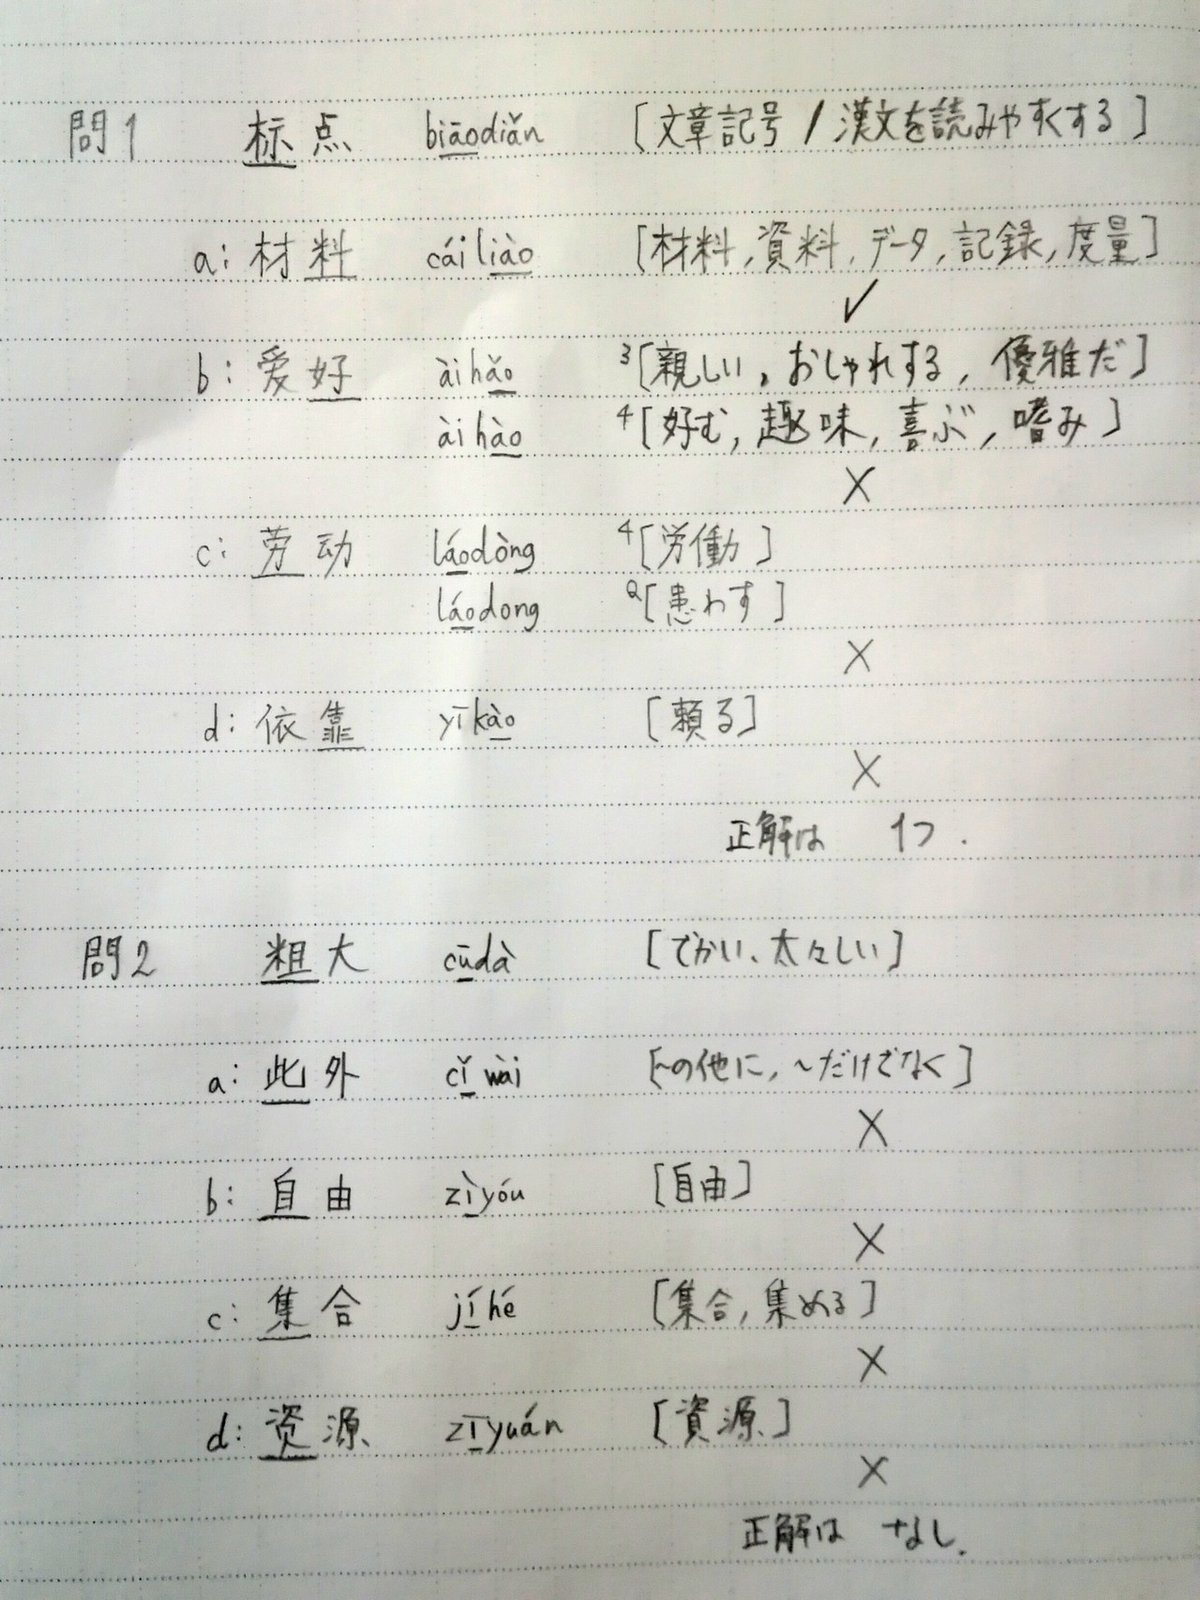 問1 标点 biāodiǎn [文章記号 / 漢文を読みやすくする]
a: 材料 cáiliào [材料, 資料, データ, 記録, 度量]
✓
b: 爱好 àihǎo ³[親しい, おしゃれする, 優雅だ]
àihào ⁴[好む, 趣味, 喜ぶ, 嗜み]
X
c: 劳动 láodòng ⁴[労働]
láodong [患わす]
X
d: 依靠 yīkào [頼る]
X
正解は 1つ.
問2 粗大 cūdà [でかい、太々しい]
a: 此外 cǐwài [~の他に, ~だけでなく]
X
b: 自由 zìyóu [自由]
X
c: 集合 jíhé [集合, 集める]
X
d: 资源 zīyuán [資源]
X
正解は なし.